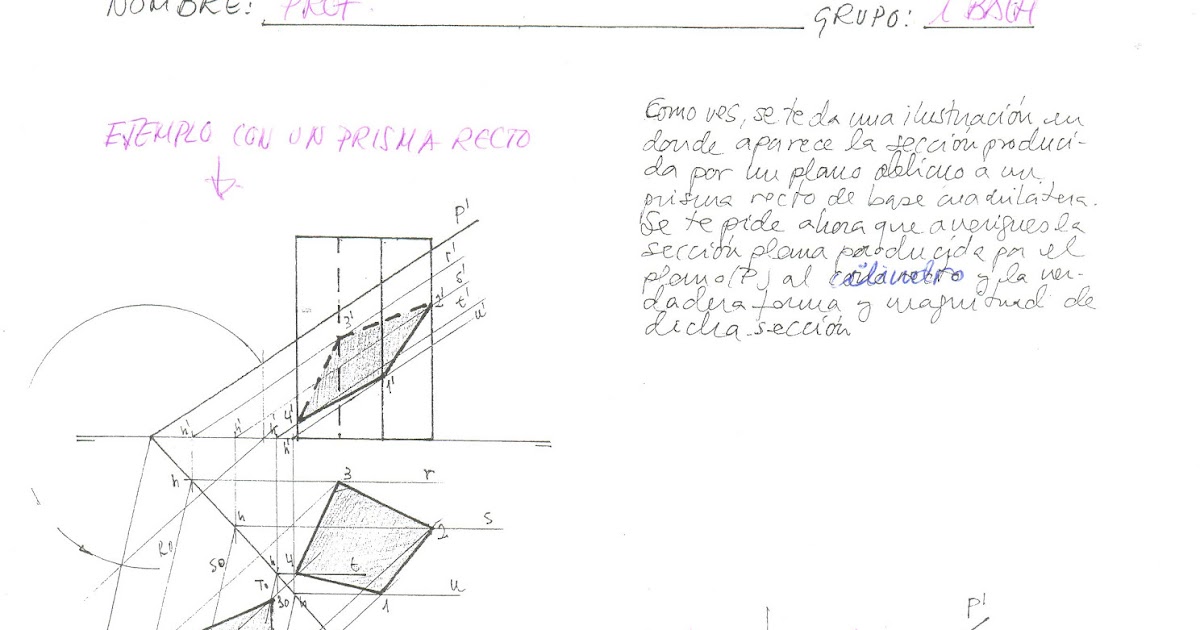 NOMBRE: PROF. GRUPO: 1 BACH
EJEMPLO CON UN PRISMA RECTO
Como ves, se te da una ilustración en
donde aparece la sección produci-
da por un plano oblicuo a un
prisma recto de base cuadrilátera.
Se te pide ahora que averigues la
sección plana producida por el
plano (P) al cilindro y la ver-
dadera forma y magnitud de
dicha sección
P'
r'
s'
t'
u'
2'
3'
1'
4'
h' h' h' h'
3 r
h
h s
2
R0 S0 h 4 t
T0 30 h 1 u
P'